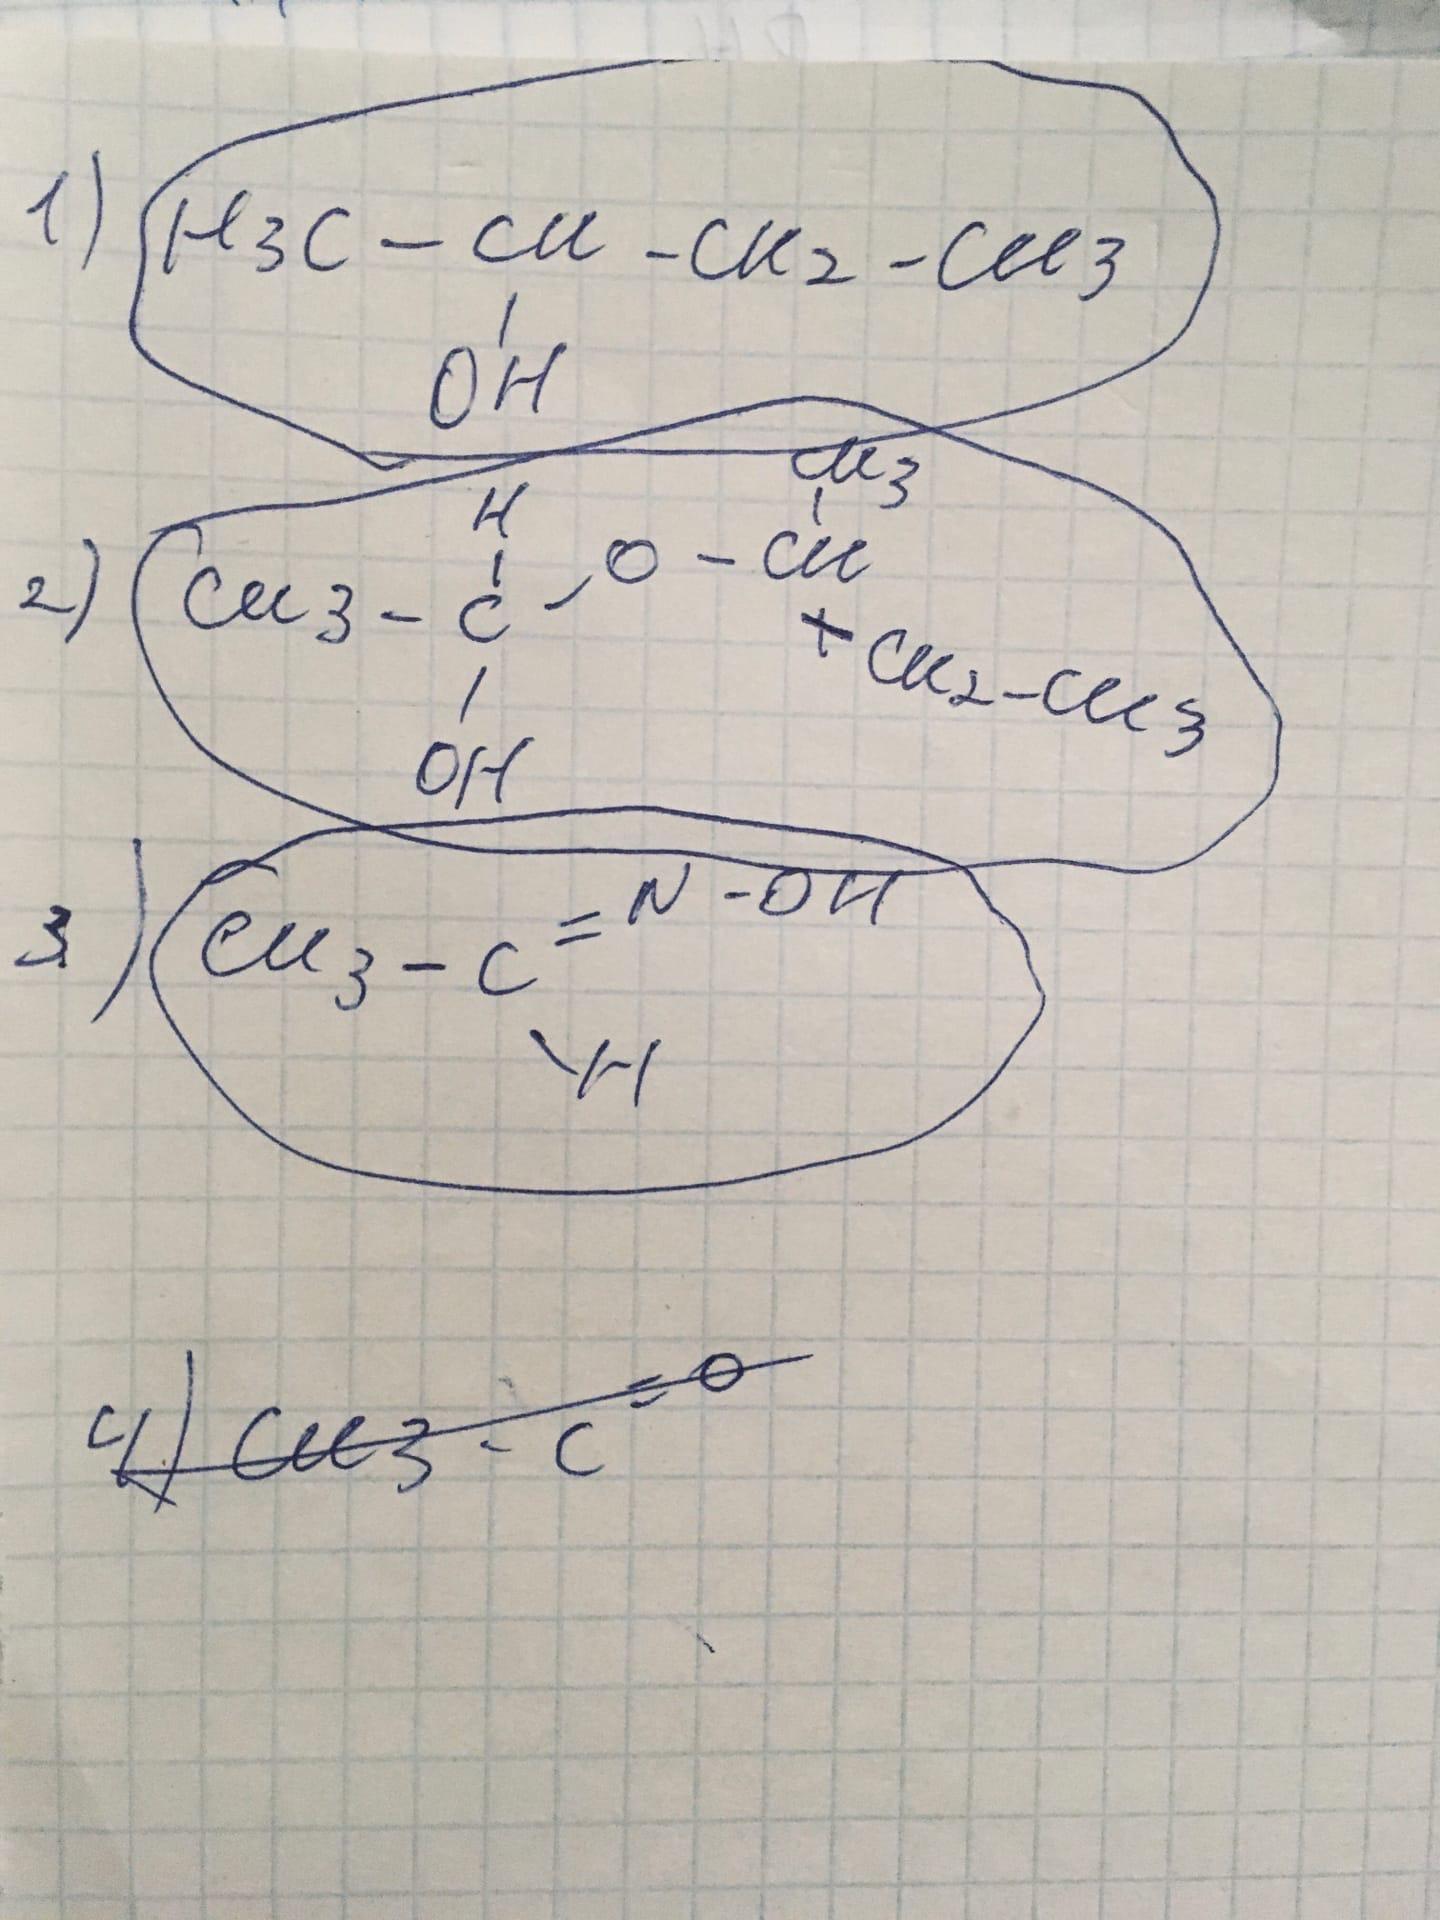 1) H3C - CH - CH2 - CH3
OH
CH3
H
2) CH3 - C - O - CH
+ CH2 - CH3
OH
3) CH3 - C = N - OH
H
4) CH3 - C = O